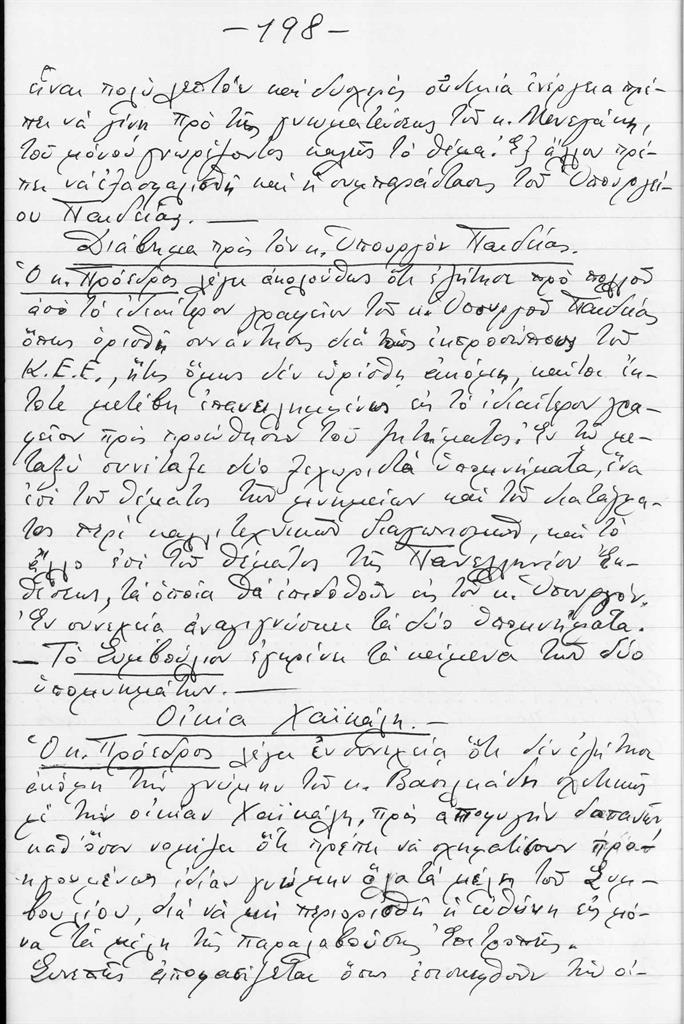 -198-
εἶναι πολύ λεπτόν καί δυσχερές οὐδεμία ἐνέργεια πρέ-
πει νά γίνῃ πρό τῆς γνωματεύσεως τοῦ κ. Μενεγάκη,
τοῦ μόνου γνωρίζοντος καλῶς τό θέμα. Ἐξ ἄλλου πρέ-
πει νά ἐξασφαλισθῇ καί ἡ συμπαράστασις τοῦ Ὑπουργεί-
ου Παιδείας. —
Διάβημα πρός τόν κ. Ὑπουργόν Παιδείας.
Ὁ κ. Πρόεδρος λέγει ἀκολούθως ὅτι ἐζήτησε πρό πολλοῦ
ἀπό τό ἰδιαίτερον γραφεῖον τοῦ κ. Ὑπουργοῦ Παιδείας
ὅπως ὁρισθῇ συνάντησις διά τούς ἐκπροσώπους τοῦ
Κ.Ε.Ε., ἥτις ὅμως δέν ὡρίσθη ἀκόμη, καίτοι ἔκ-
τοτε μετέβη ἐπανειλημμένως εἰς τό ἰδιαίτερον γρα-
φεῖον πρός προώθησιν τοῦ ζητήματος. Ἐν τῷ με-
ταξύ συνέταξε δύο ξεχωριστά ὑπομνήματα, ἕνα
ἐπί τοῦ θέματος τῶν μνημείων καί τοῦ διατάγμα-
τος περί καλλιτεχνικῶν διαγωνισμῶν, καί τό
ἄλλο ἐπί τοῦ θέματος τῆς Πανελληνίου Ἐκ-
θέσεως, τά ὁποῖα θά ἐπιδοθοῦν εἰς τόν κ. Ὑπουργόν.
Ἐν συνεχείᾳ ἀναγιγνώσκει τά δύο ὑπομνήματα.
— Τό Συμβούλιον ἐγκρίνει τά κείμενα τῶν δύο
ὑπομνημάτων. —
Οἰκία Χαϊκάλη. —
Ὁ κ. Πρόεδρος λέγει ἐν συνεχείᾳ ὅτι δέν ἐζήτησε
ἀκόμη τήν γνώμην τοῦ κ. Βασιλειάδη σχετικῶς
μέ τήν οἰκίαν Χαϊκάλη, πρός ἀποφυγήν δαπανῶν
καθ' ὅσον νομίζει ὅτι πρέπει νά σχηματίσουν προ-
ηγουμένως ἰδίαν γνώμην ὅλα τά μέλη τοῦ Συμ-
βουλίου, διά νά μή περιορισθῇ ἡ εὐθύνη εἰς μό-
να τά μέλη τῆς παραλαβούσης Ἐπιτροπῆς.
Συνεπῶς ἀποφασίζεται ὅπως ἐπισκεφθοῦν τήν οἰ-